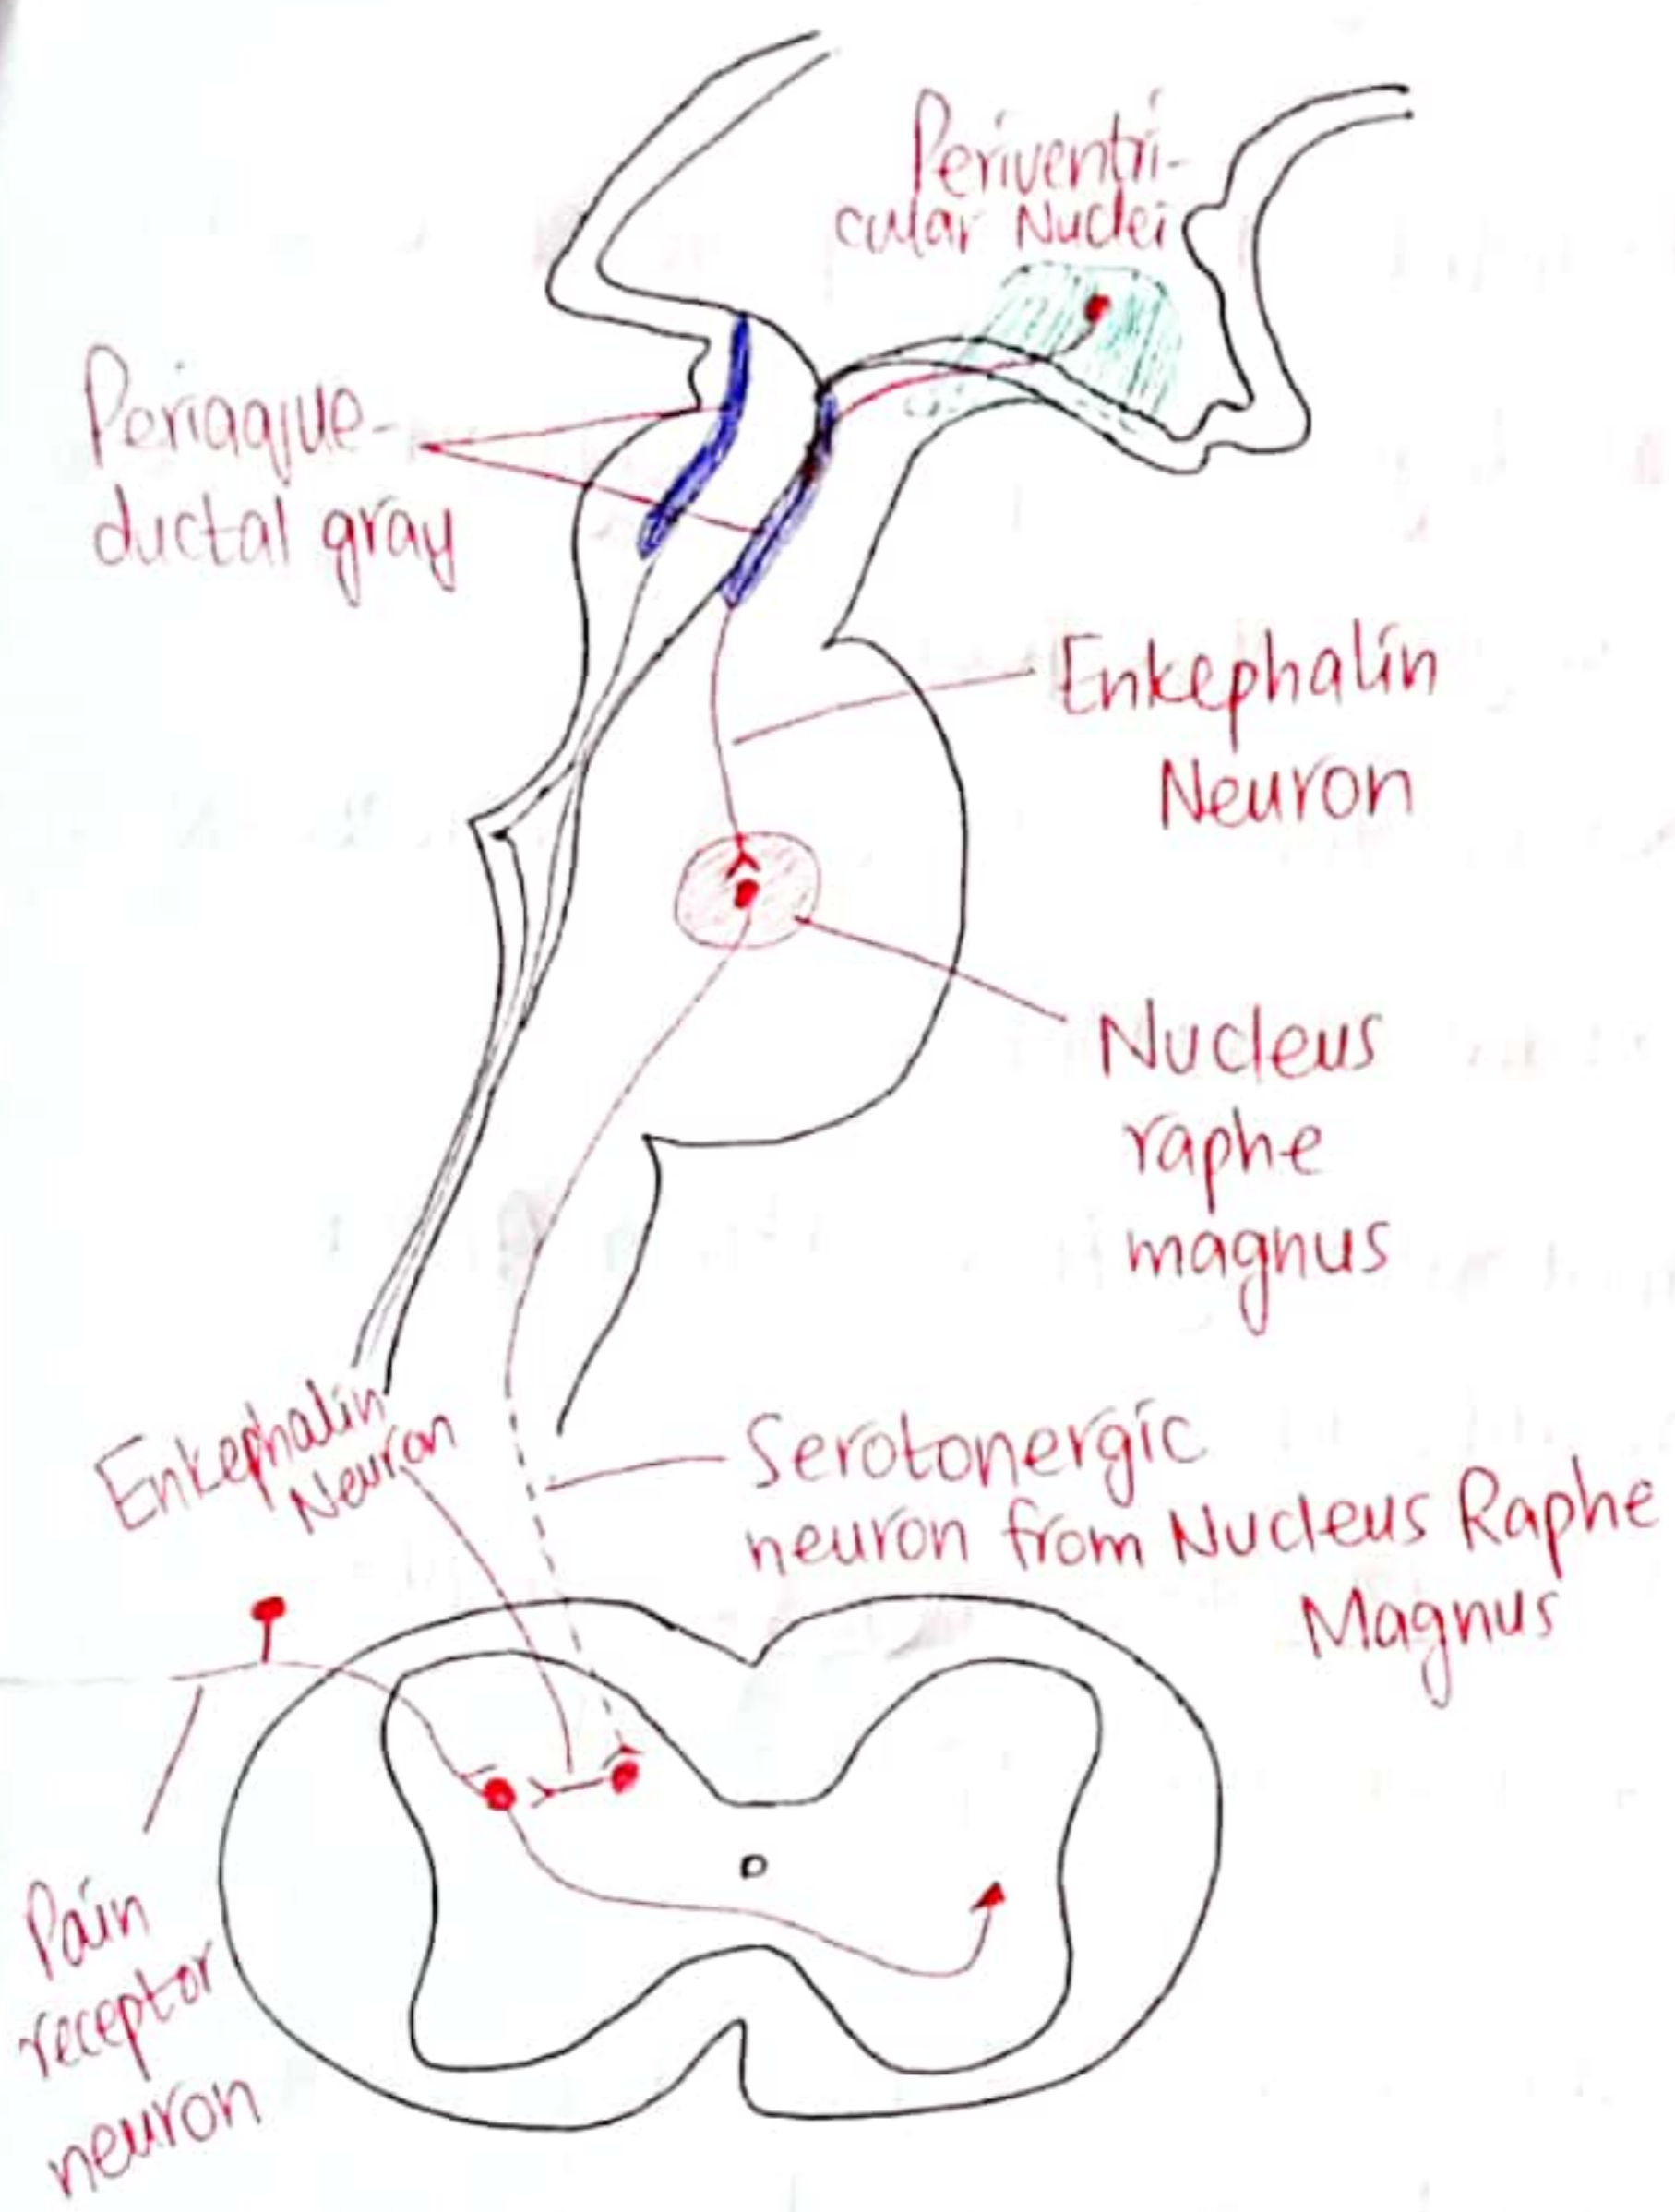 Periventri-
cular Nuclei
Periaque-
ductal gray
Enkephalin
Neuron
Nucleus
raphe
magnus
Enkephalin
Neuron
Serotonergic
neuron from Nucleus Raphe
Magnus
Pain
receptor
neuron